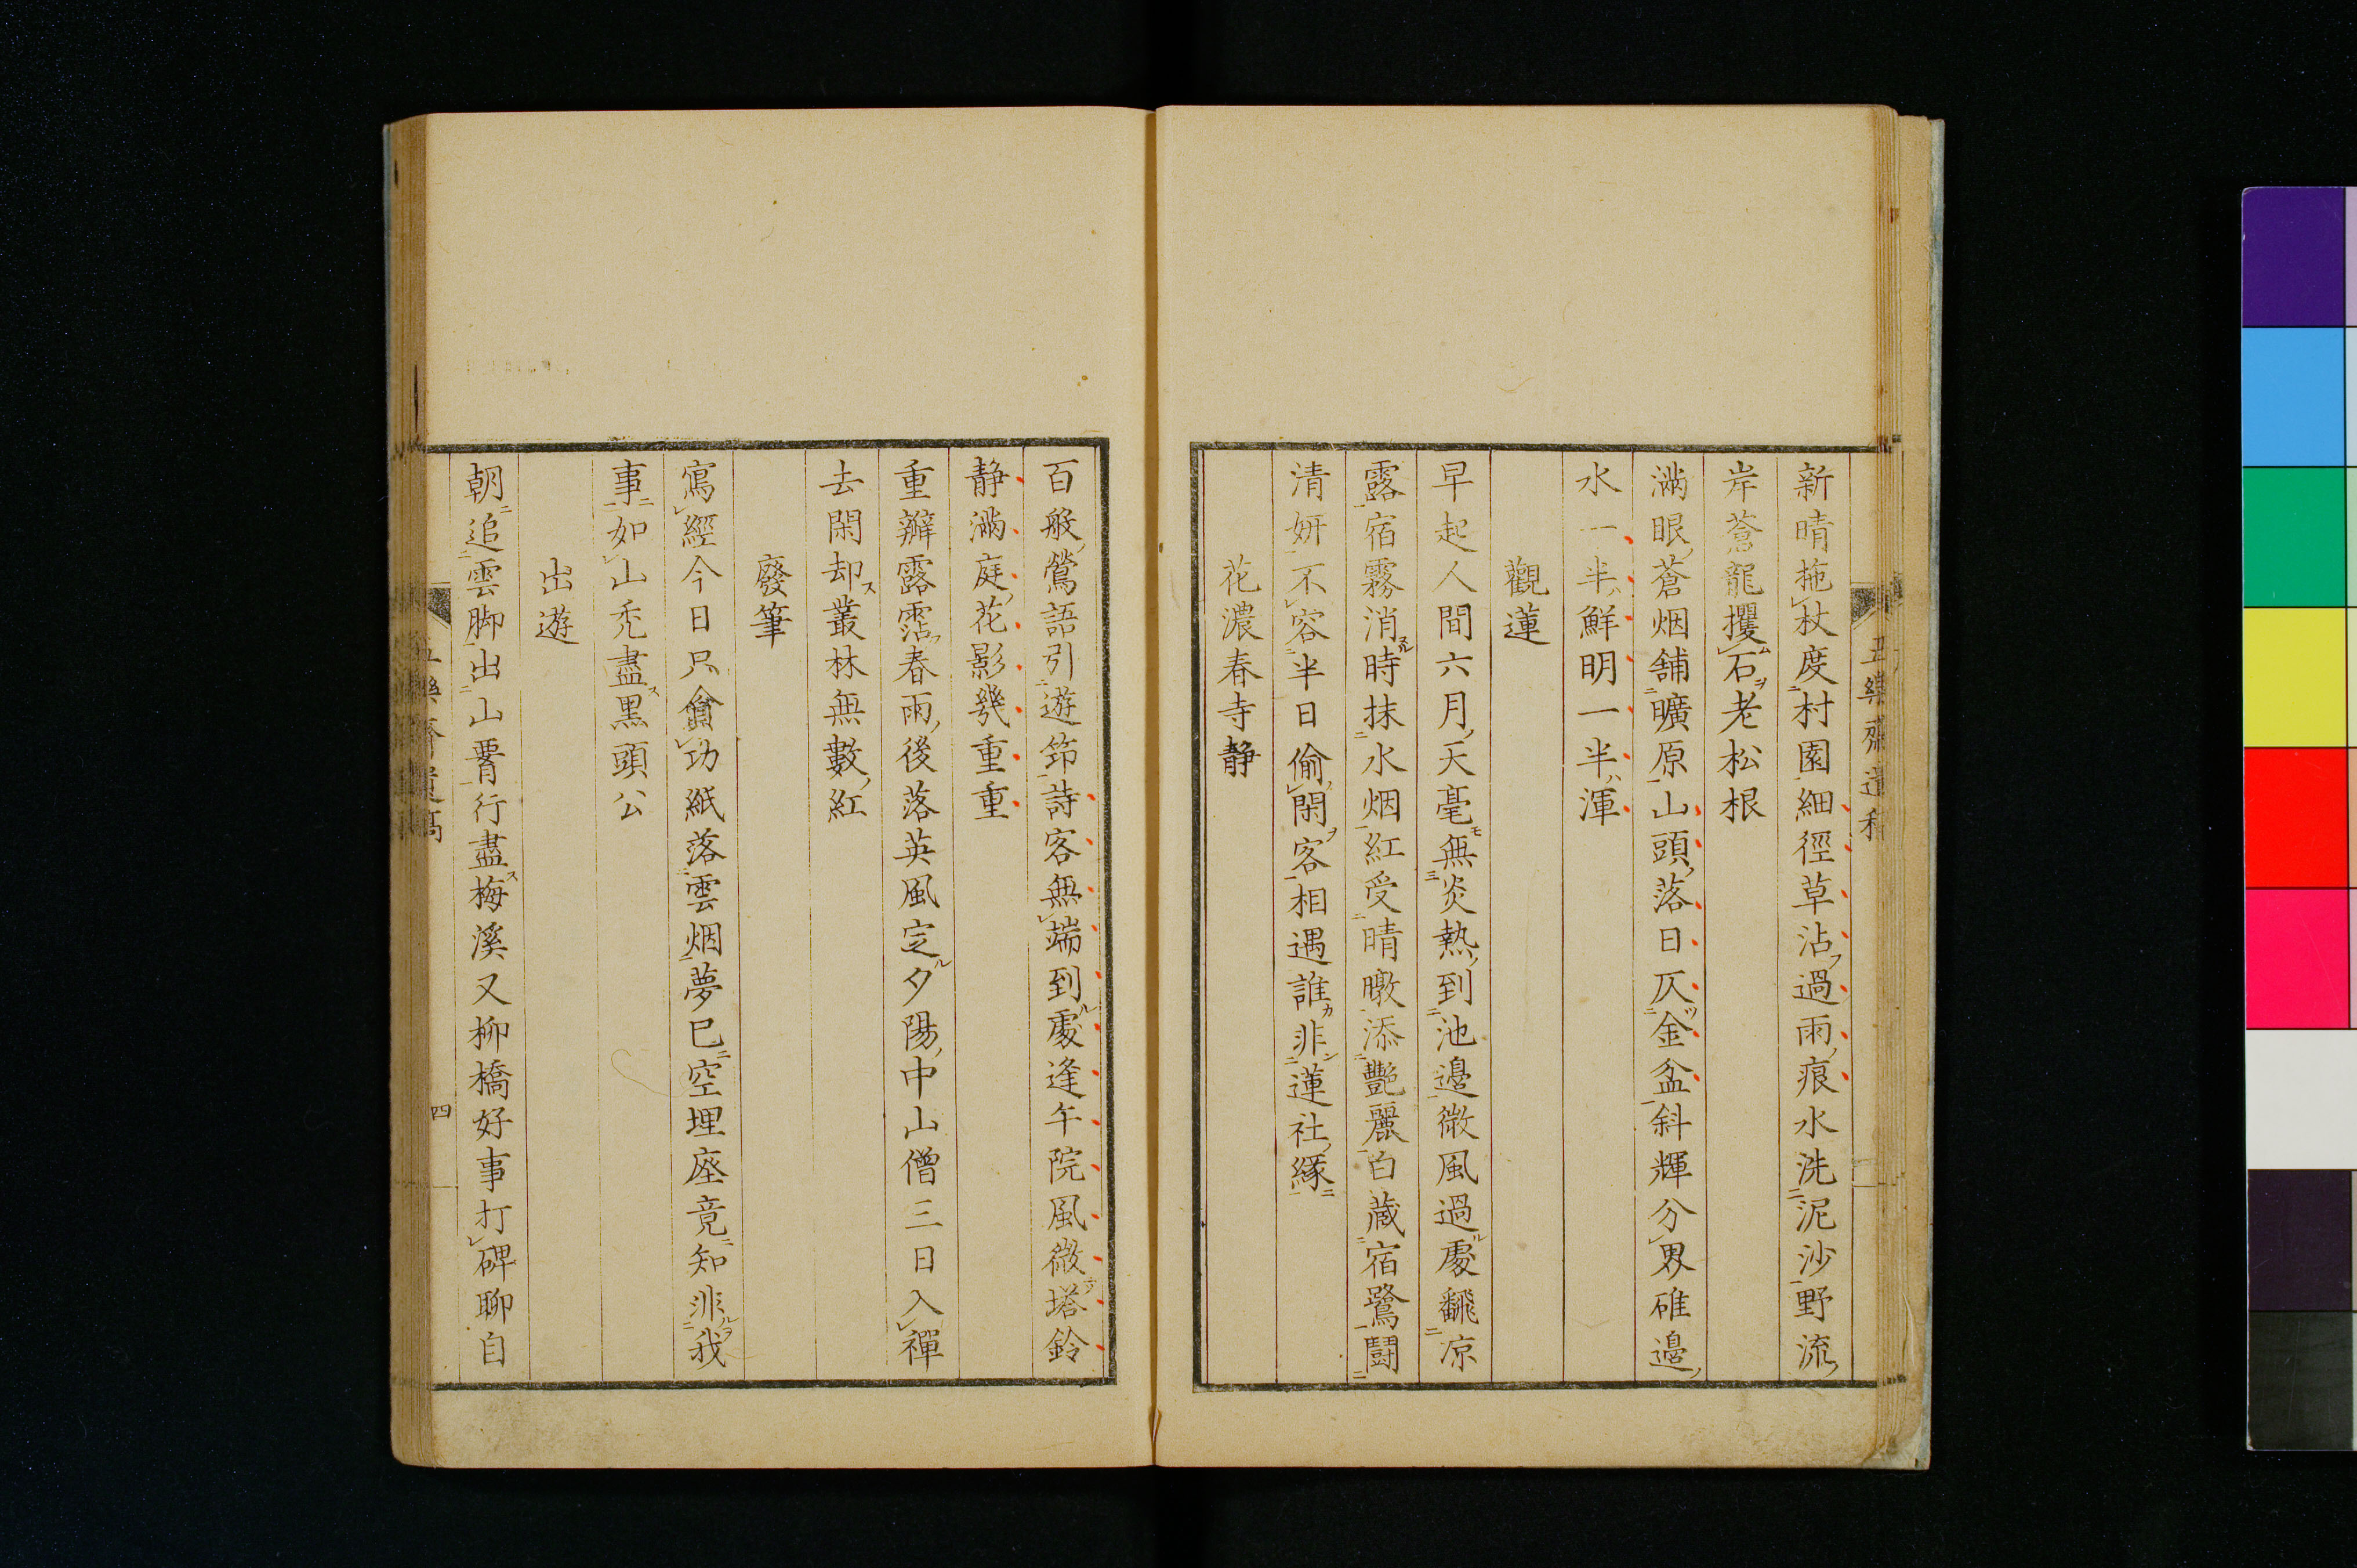 新晴拖杖度村園細徑草沾過雨痕水洗泥沙野流
岸蒼龍攫石老松根
滿眼蒼烟舗曠原山頭落日仄金盆斜輝分界碓邊
水一半鮮明一半渾
觀蓮
早起人間六月天毫無炎熱到池邊微風過處飜凉
露宿霧消時抹水烟紅受晴暾添艷麗白蔵宿鷺鬪
清妍不容半日偷閑客相遇誰非蓮社緣
花濃春寺静
百般鶯語引遊笻詩客無端到處逢午院風微塔鈴
静滿庭花影幾重重
重瓣露霑春雨後落英風定夕陽中山僧三日入禪
去閑却叢林無數紅
廢筆
寫經今日只貪功紙落雲烟夢已空埋座竟知非我
事如山禿盡黒頭公
出遊
朝追雲脚出山胥行盡梅溪又柳橋好事打碑聊自
四